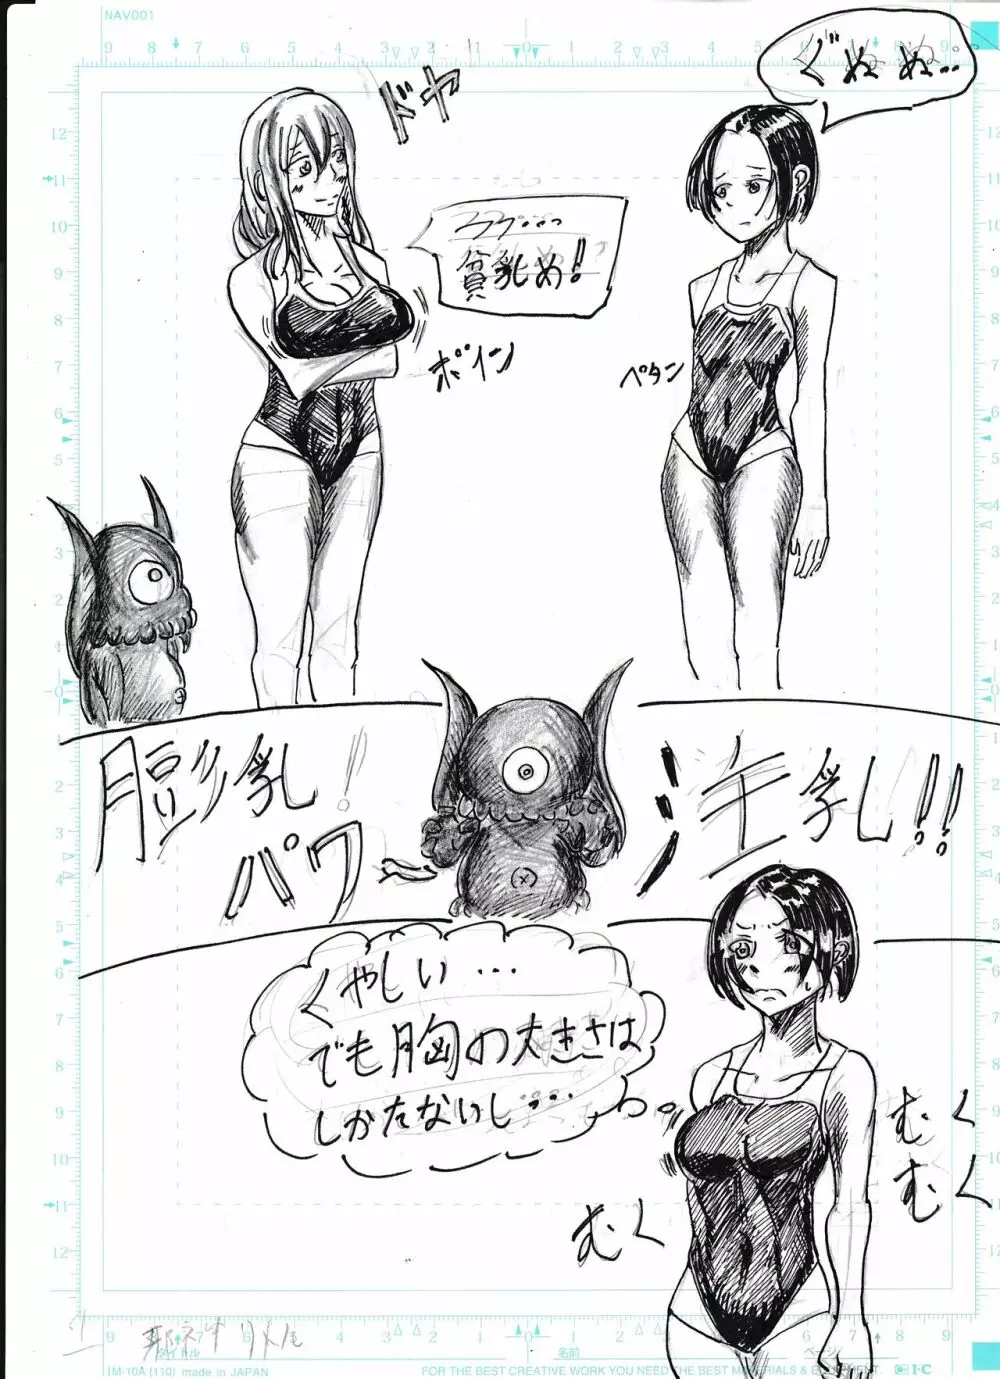 NAV001
ぐぬぬ…
ドヤ
フフ……
貧乳め!!
ボイン
ペタン
膨乳!
パワ〜
注乳!!
くやしい…
でも胸の大きさは
しかたないし…
むく
むく
むく
タイトル
名前
ページ
IM-10A (110) made in JAPAN
FOR THE BEST CREATIVE WORK YOU NEED THE BEST MATERIALS & EQUIPMENT.
I·C